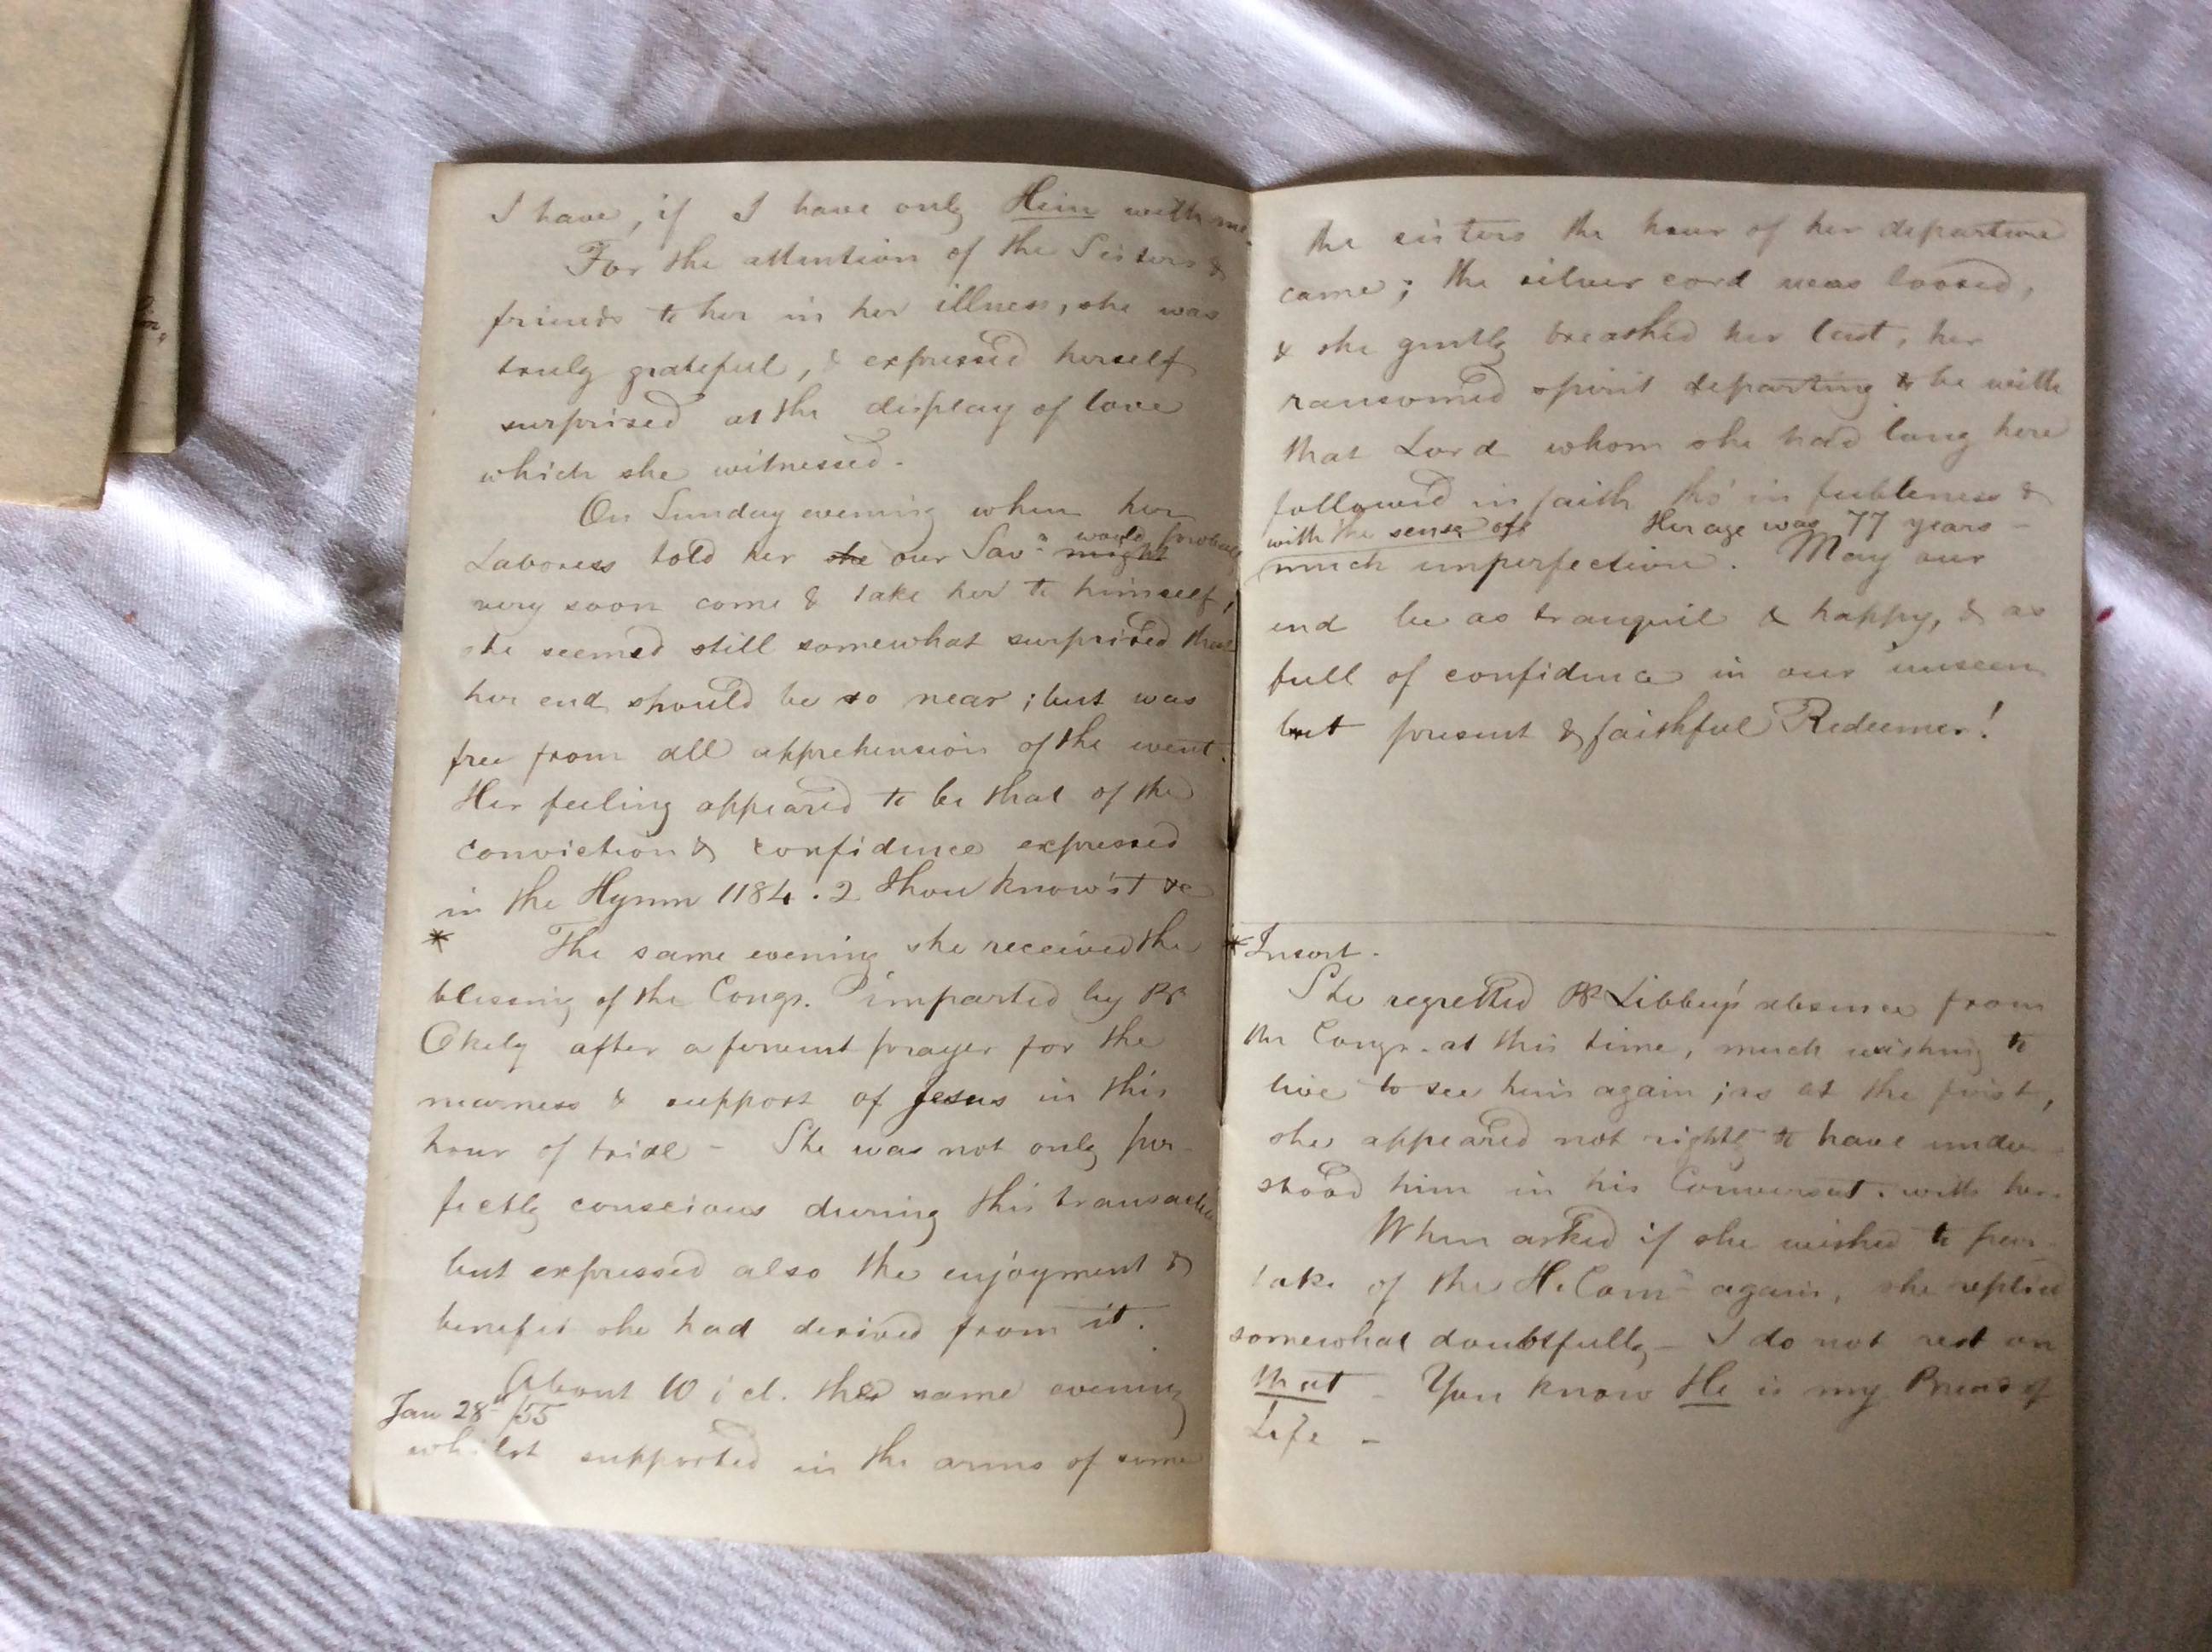 I have, if I have only Him with me.
For the attention of the Sisters &
friends to her in her illness, she was
truly grateful, & expressed herself
surprised at the display of love
which she witnessed.
On Sunday evening when her
would probably
Laboress told her she our Sav.r might
very soon come & take her to himself,
she seemed still somewhat surprised that
her end should be so near; but was
free from all apprehension of the event.
Her feeling appeared to be that of the
conviction & confidence expressed
in the Hymn 1184.2 Thou know'st &c
* The same evening she received the
blessing of the Congr. imparted by Br.
Okely after a fervent prayer for the
nearness & support of Jesus in this
hour of trial - She was not only per-
fectly conscious during this transaction
but expressed also the enjoyment &
benefit she had derived from it.
About 10 o'cl. the same evening
Jan 28th/55
whilst supported in the arms of some
the sisters the hour of her departure
came; the silver cord was loosed,
& she gently breathed her last, her
ransomed spirit departing to be with
that Lord whom she had long here
followed in faith tho' in feebleness &
with the sense of Her age was 77 years -
much imperfection. May our
end be as tranquil & happy, & as
full of confidence in our unseen
but present & faithful Redeemer!
* Insert.
She regretted Br Libbey's absence from
the Congr. at this time, much wishing to
live to see him again; as at the first,
she appeared not rightly to have under-
stood him in his Conversat. with her.
When asked if she wished to par-
take of the H. Com.n again, she replied
somewhat doubtfully - I do not rest on
that - You know He is my Bread of
Life -